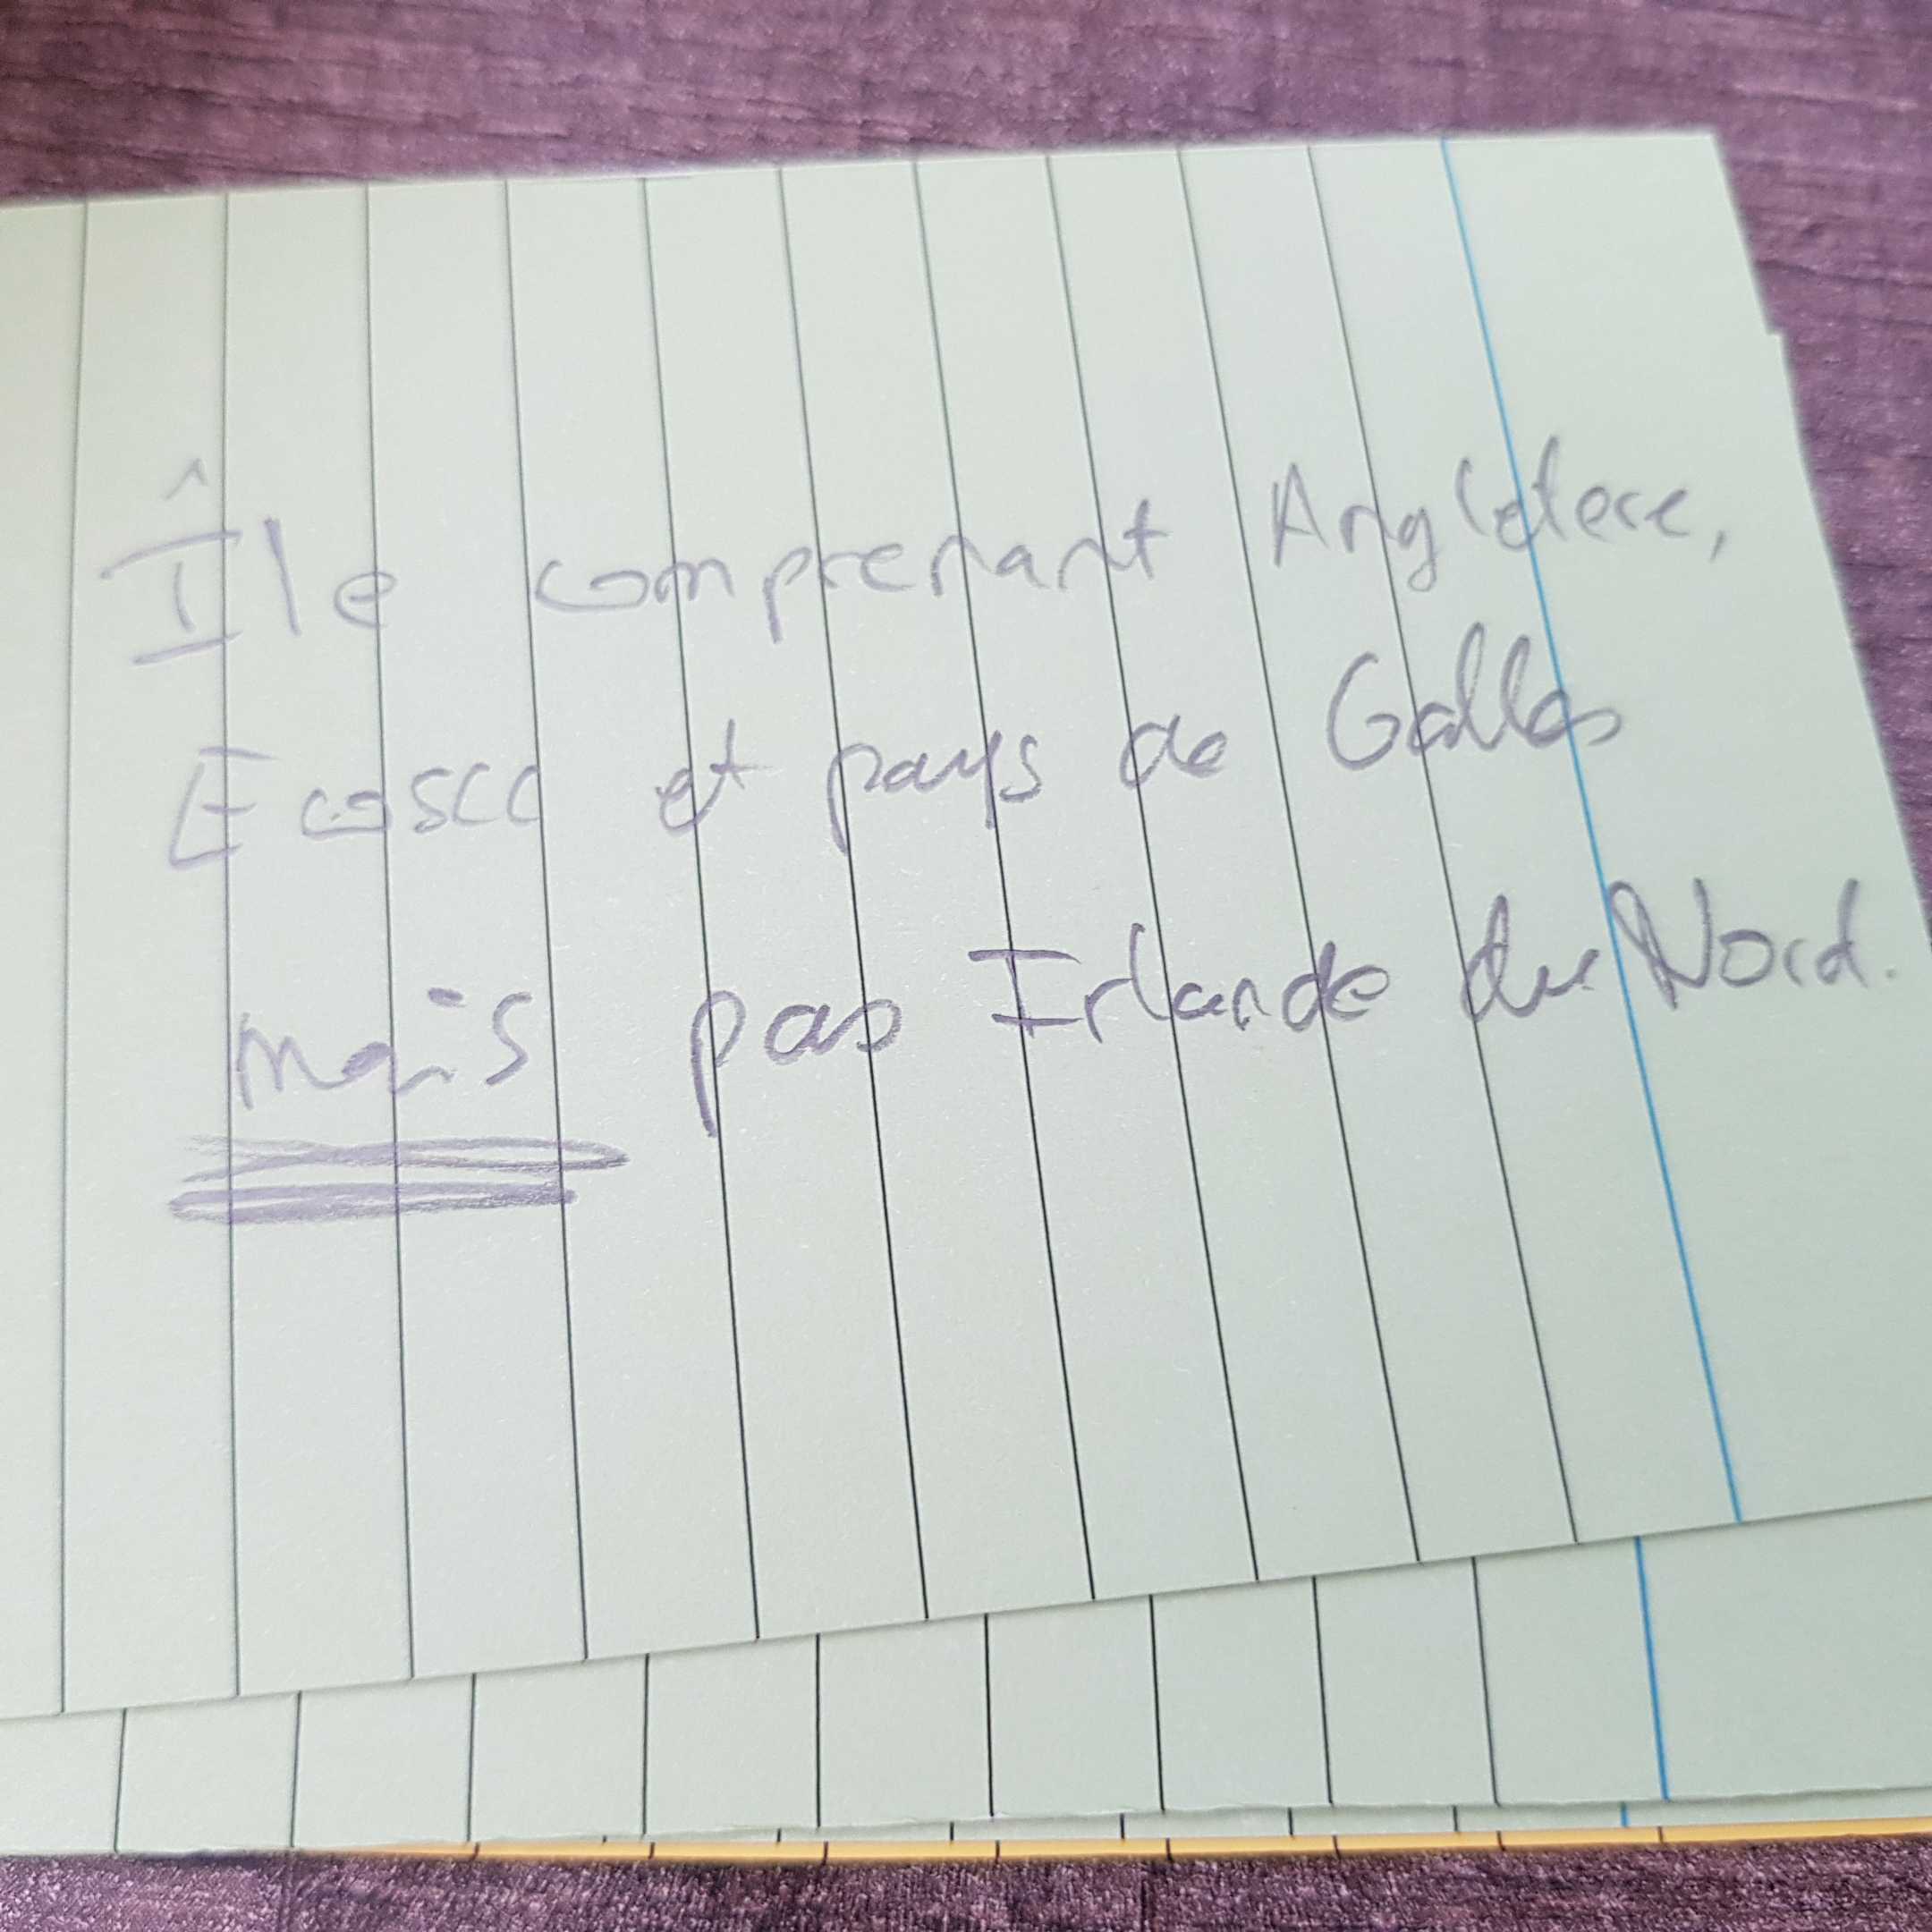 Île comprenant Angleterre,
Ecosse et pays de Galles
mais pas Irlande du Nord.